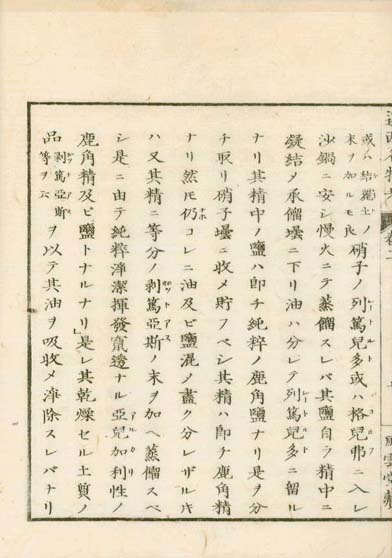 或ハ結麗土ノ末ヲ加ルモ良 硝子ノ列篤兒多或ハ格兒弗ニ入レ
沙鍋ニ安シ慢火ニテ蒸餾スレバ其鹽自ラ精中ニ
凝結メ承餾壜ニ下リ油ハ分レテ列篤兒多ニ留ル
ナリ其精中ノ鹽ハ即チ純粹ノ鹿角鹽ナリ是ヲ分
チ取リ硝子壜ニ收メ貯フベシ其精ハ即チ鹿角精
ナリ然モ仍コレニ油及ビ鹽混ノ盡ク分レザルキ
ハ又其精ニ等分ノ剥篤亞斯ノ末ヲ加ヘ蒸餾スベ
シ是ニ由テ純粹渾潔揮發竄透ナル亞兒加利性ノ
鹿角精及ビ鹽トナルナリ」是レ其乾燥セル土質ノ
品剥篤亞斯等ヲ云ヲ以テ其油ヲ吸收メ渾除スレバナリ